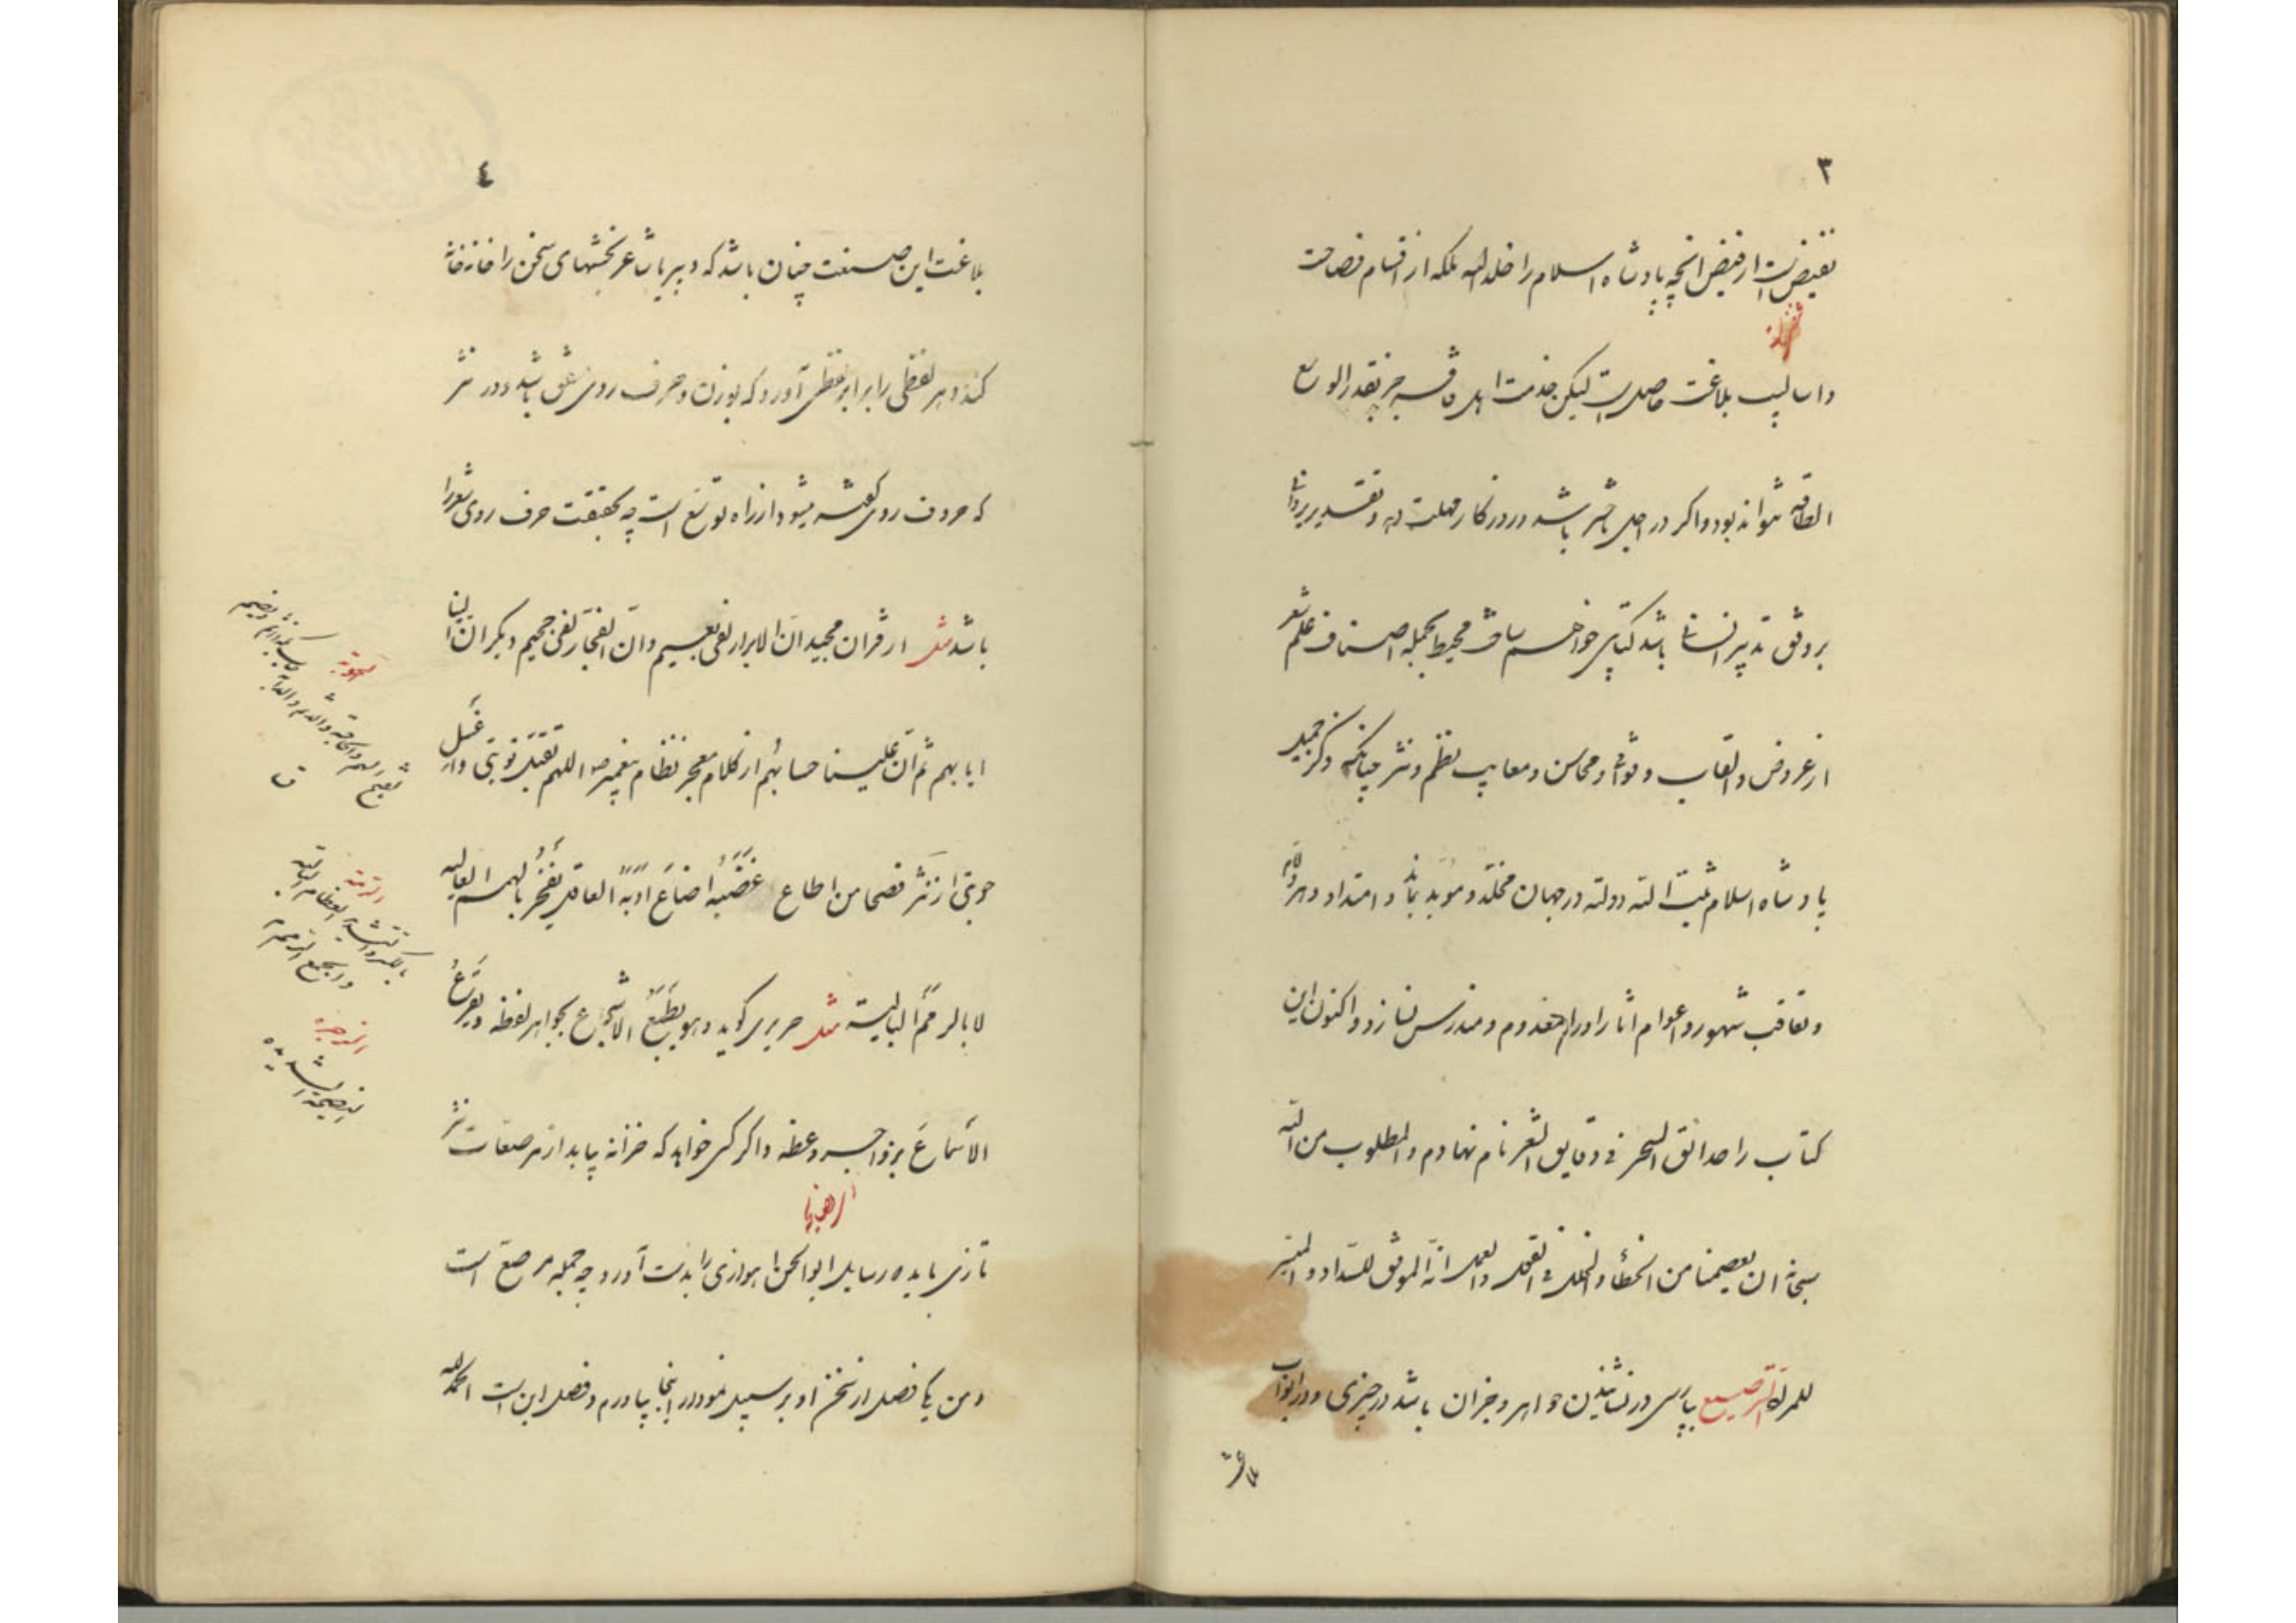 ٣
نقیض است از فیض انچه پادشاه اسلام را خلد الله ملکه از اقسام فصاحت
واسالیب بلاغت حاصل است لیکن خدمت اهل فاقه جز بقدر الوسع
الطاقه نتواند بود واگر در اجل تاخیر باشد و روزکار مهلت دهد وتقدیر یزدان
بر وفق تدبیر انسان باشد کتابی خواهم ساخت محیط بجمله اصناف علم شعر
از عروض والقاب وقوافی ومحاسن ومعایب نظم ونثر چنانکه ذکر جمیل
پادشاه اسلام ثبت الله دولته در جهان مخلد ومؤبد بماند وامتداد دهور
وتعاقب شهور واعوام اثار اورا منهدم ومندرس نسازد واکنون این
کتاب را حدائق السحر فی دقایق الشعر نام نهادم والمطلوب من الله
سبحانه ان یعصمنا من الخطأ والخلل فی القول والعمل انه الموفق للسداد والمیسر
للمراد الترصیع پارسی در نشاندن جواهر وجزان باشد در چیزی ودر ابواب
بلاغت
٤
بلاغت این صنعت چنان باشد که دبیر یا شاعر بخشهای سخن را خانه خانه
کند وهر لفظی را برابر لفظی آورد که بوزن وحرف روی متفق باشد ودر نثر
که حروف روی گفته میشود از راه توسع است چه بحقیقت حرف روی شعر را
باشد مثل از قرآن مجید ان الابرار لفی نعیم وان الفجار لفی جحیم دیگر ان الینا
ایابهم ثم ان علینا حسابهم از کلام معجز نظام پیغمبر صم اللهم تقبل توبتی واغسل
حوبتی از نثر فصحا من اطاع غضبه اضاع ادبه العاقل یفخر بالهمم العالیه
لا بالرمم البالیة مثل حریری گوید وهو یطبع الاسجاع بجواهر لفظه ویقرع
الاسماع بزواجر وعظه واگر کسی خواهد که خزانه بیابد از مرصعات نثر
تازی باید رسایل ابوالحسن اهوازی را بدست آورد چه جمله مرصع است
ومن یک فصل از سخن او بر سبیل نمودار اینجا بیاورم وفصل این است الحمدلله
الرمة
بالکسر
العظام البالیة
والجمع